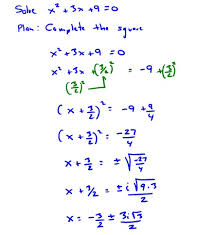 Solve x² + 3x + 9 = 0
Plan: Complete the square
x² + 3x + 9 = 0
x² + 3x + (3/2)² = -9 + (3/2)²
(3/2)²
(x + 3/2)² = -9 + 9/4
(x + 3/2)² = -27/4
x + 3/2 = ± √(-27/4)
x + 3/2 = ± i √(9·3)/2
x = -3/2 ± 3i√3/2